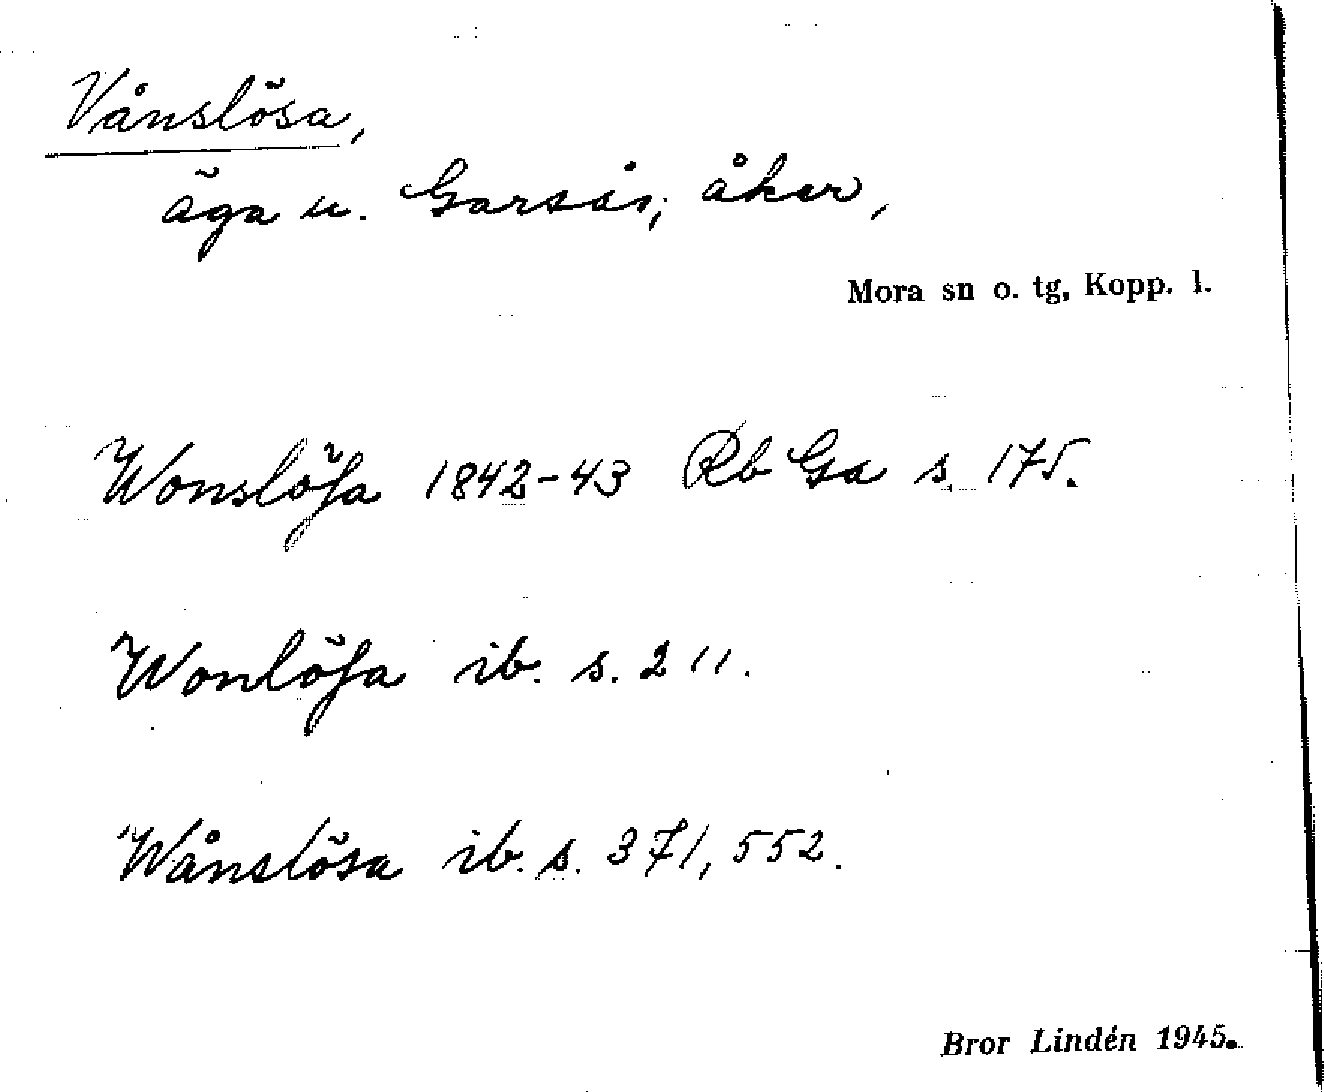 Vånslösa,
äga u. Garsås; åker,
Mora sn o. tg, Kopp. l.
Wonslöſa 1842-43 Rb Ga s. 175.
Wonlöſa ib. s. 211.
Wånslösa ib. s. 371, 552.
Bror Lindén 1945.